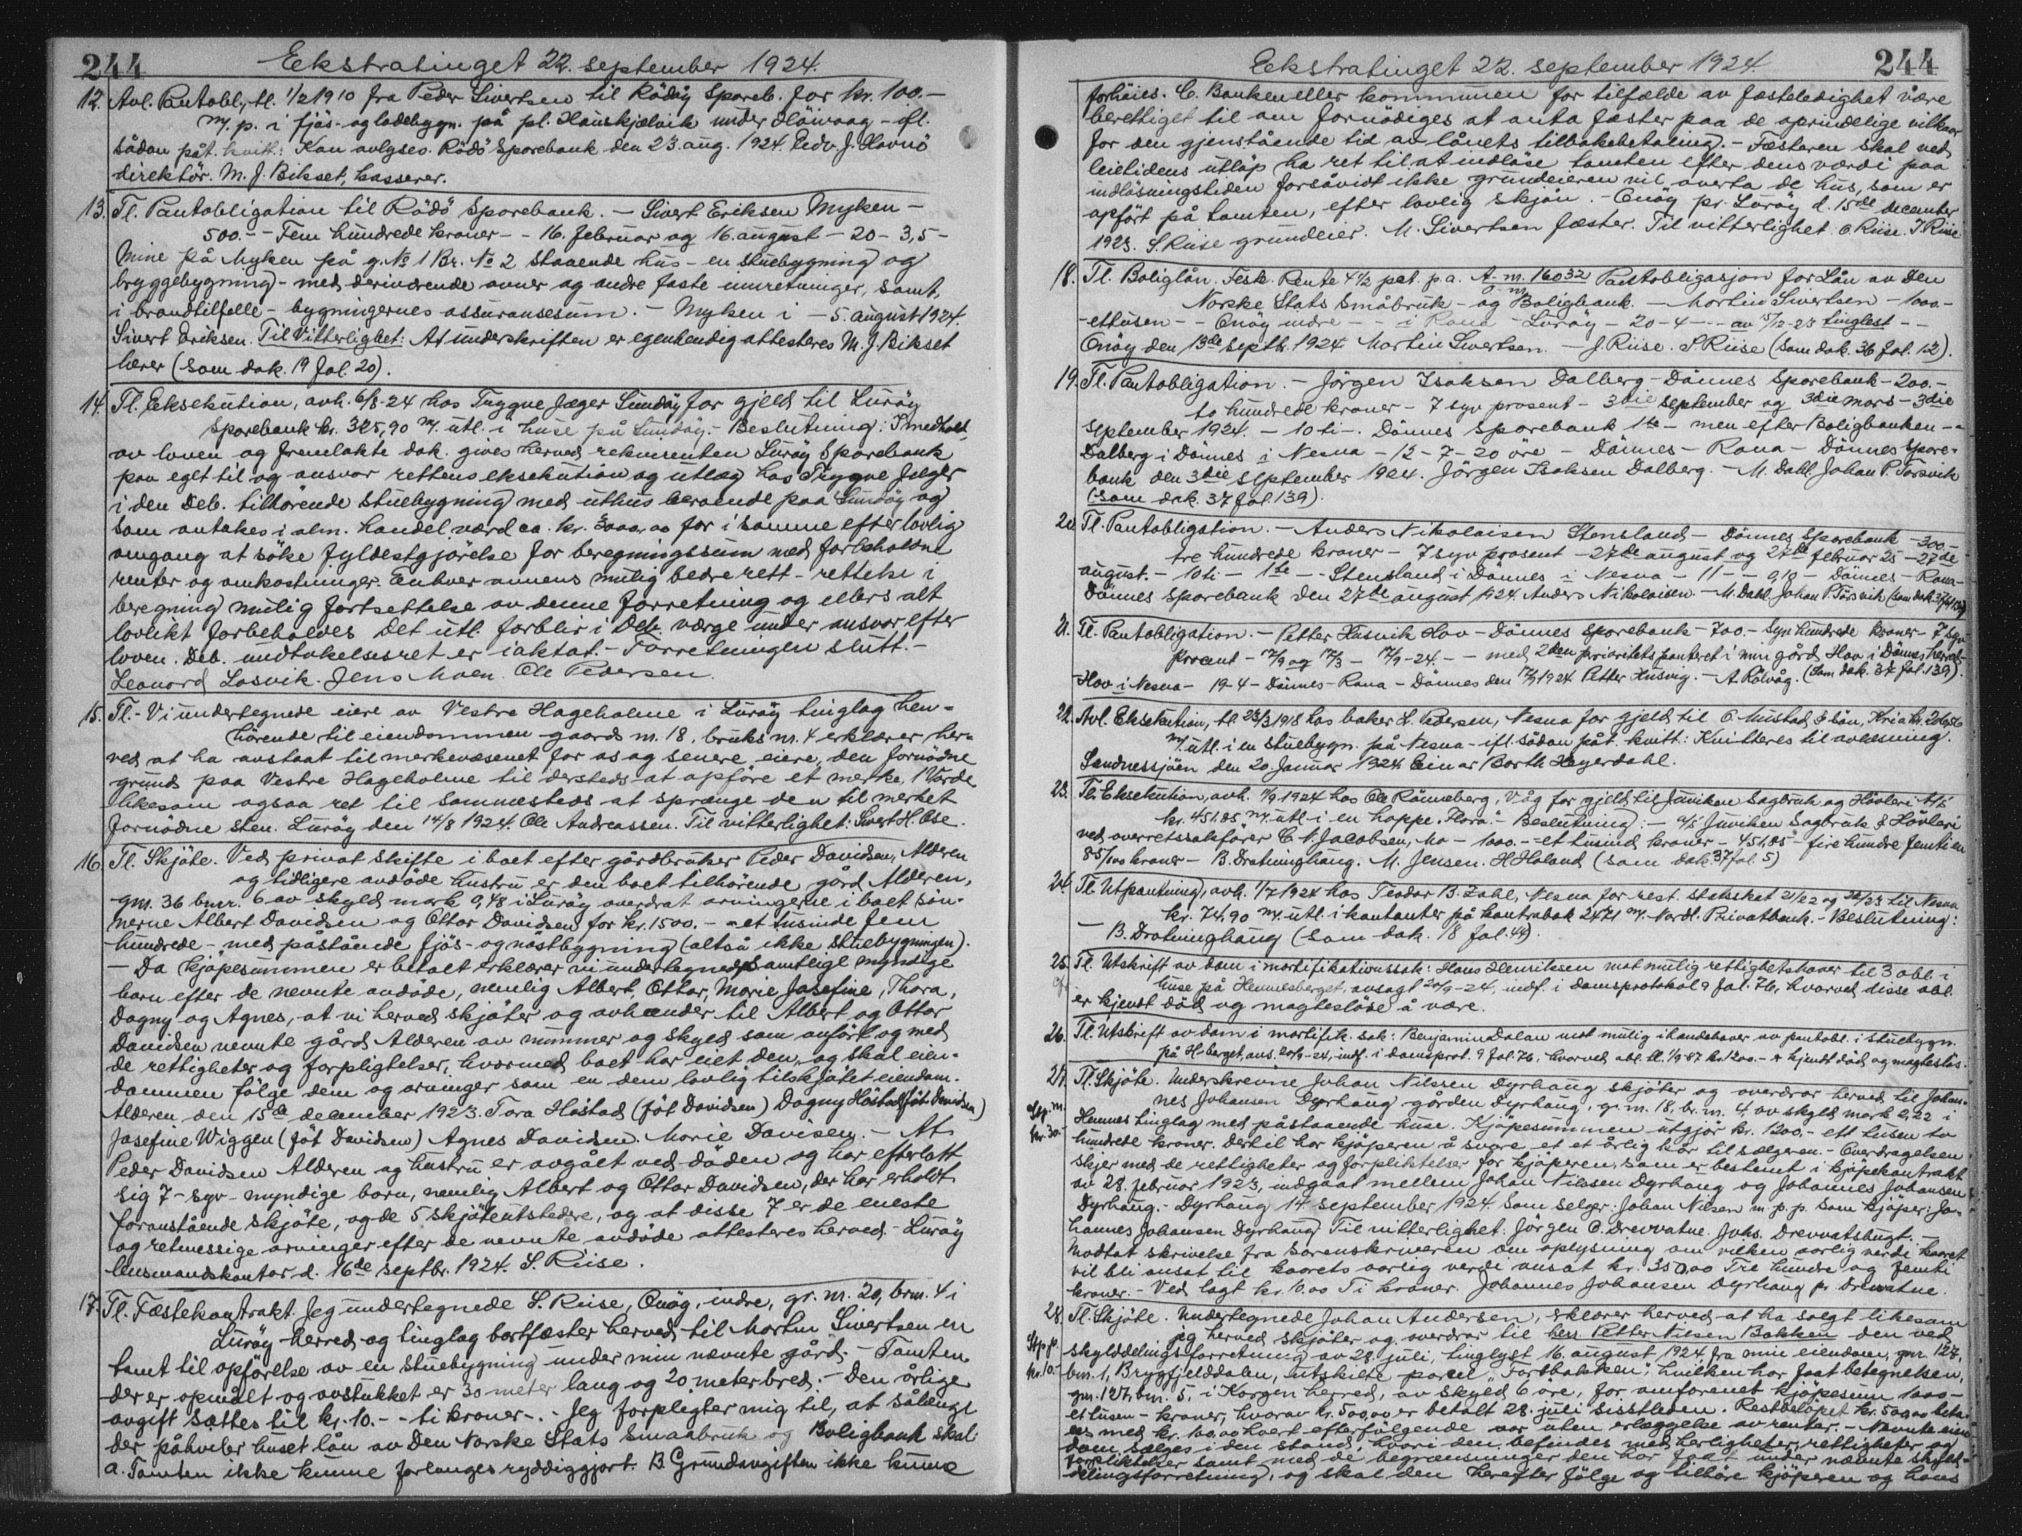 244
Ekstratinget 22. september 1924.
12. Avl. Pantobl., tl. 1/2 1910 fra Peder Sivertsen til Rödöy Spareb. for kr. 100.-
m. p. i fjös- og ladebygn. på pl. Hauskjælvik under - ifl.
sådan påt. kvitt: Kan avlyses. Rödö Sparebank den 23. aug. 1924. Edv. J. Havnö
direktör. M. J. Bikset, kasserer.
13. Tl. Pantobligation til Rödö Sparebank. - Sivert Eriksen Myken -
500.- - Fem hundrede kroner - - 16. februar og 16. august - 20 - 3,5 -
Mine på Myken på g. No 1 Br. No 2 staaende hus - en stuebygning og
bryggebygning - med deriværende ovner og andre faste innretninger, samt,
i brandtilfelle - bygningernes assuransesum. - Myken i - 5. august 1924.
Sivert Eriksen. Til Vitterlighet: At underskriften er egenhendig attesteres M. J. Bikset
lærer (som dok. 19 fol. 20).
14. Tl. Eksekution, avh. 6/8-24 hos Trygve Jæger Sundöy for gjeld til Luröy
sparebank kr. 325,90 m/ utl. i huse på Sundöy. - Beslutning: I medhold
av loven og fremlakte dok. gives herved rekvirenten Luröy Sparebank
paa eget til og ansvar rettens eksekution og utlæg hos Trygve Jæger
i den Deb. tilhörende stuebygning med uthus beroende paa Sundöy og
som antakes i alm. handel værd ca. kr. 3000,00 for i samme efter lovlig
omgang at söke fyldestgjörelse for beregningssum med forbeholdne
renter og omkostninger. Enhver annens mulig bedre rett - rettelse i
beregning mulig fortsettelse av denne forretning og ellers alt
lovlikt forbeholdes. Det utl. forblir i Deb. værge under ansvar efter
loven. Deb. undtakelsesret er iaktat. - Forretningen slutt. -
Leonard Losvik. Jens Moen. Ole Pedersen.
15. Tl. - Vi undertegnede eiere av Vestre Hageholme i Luröy tinglag hen-
hörende til eiendommen gaards nr. 18. bruks nr. 4 erklærer her-
ved at ha avstaat til merkevæsenet for os og senere eiere, den fornödne
grund paa Vestre Hageholme til dersteds at opföre et merke, 1 Varde
likesom ogsaa ret til sammesteds at sprænge den til merket
fornödne sten. Luröy den 14/8 1924. Ole Andreassen. Til vitterlighet: Sivert H. Olse.
16. Tl. Skjöte. Ved privat skifte i boet efter gårdbruker Peder Davidsen, Alderen
og tidligere avdöde hustru er den boet tilhörende gård Alderen,
gnr. 36 bnr. 6 av skyld mark 9,48 i Luröy overdrat arvingerne i boet sön-
nerne Albert Davidsen og Ottar Davidsen for kr. 1500. - et tusinde fem
hundrede - med påstående fjös- og nöstbygning (altså ikke stuebygningen).
- Da kjöpesummen er betalt erklærer vi undertegnede samtlige myndige
barn efter de nevnte avdöde, nemlig Albert, Ottar, Marie Josefine, Thora,
Dagny og Agnes, at vi herved skjöter og avhænder til Albert og Ottar
Davidsen nevnte gård Alderen av nummer og skyld som anfört og med
de rettigheter og forpligtelser, hvormed boet har eiet den, og skal eien-
dommen fölge dem og arvinger som en dem lovlig tilskjötet eiendom.
Alderen den 15de december 1923. Tora Håstad (föt Davidsen) Dagny Håstad (föt Davidsen)
Josefine Wiggen (föt Davidsen) Agnes Davidsen. Marie Davisen. - At
Peder Davidsen Alderen og hustru er avgået ved döden og har efterlatt
sig 7 - syv - myndige barn, nemlig Albert og Ottar Davidsen, der har erholdt
foranstående skjöte, og de 5 skjöteutstedere, og at disse 7 er de eneste
og retmessige arvinger efter de nevnte avdöde attesteres herved. Luröy
lensmandskontor d. 16de septbr. 1924. S. Riise.
17. Tl. Fæstekontrakt. Jeg undertegnede S. Riise, Onöy, indre, gr. nr. 20, brnr. 4 i
Luröy herred og tinglag bortfæster herved til Morten Sivertsen en
tomt til opförelse av en stuebygning under min nævnte gård. - Tomten
der er opmålt og avstukket er 30 meter lang og 20 meter bred. - Den årlige
avgift sættes til kr. 10. - - ti kroner -. - Jeg forpligter mig til, at sålenge
der påhviler huset lån av Den Norske Stats Smaabruk og Boligbank skal
a. Tomten ikke kunne forlanges ryddiggjort. B. Grundavgiften ikke kunne
Ekstratinget 22. september 1924.
244
forhöies. C. Banken eller kommunen for tilfælde av fæsteledighet være
berettiget til om fornödiges at anta fæster paa de oprindelige vilkaar
for den gjenstående tid av lånets tilbakebetaling. - Fæsteren skal ved
leietidens utlöp ha ret til at indlöse tomten efter dens værdi paa
indlösningstiden forsåvidt ikke grundeieren vil overta de hus, som er
opfört på tomten, efter lovlig skjön. - Onöy pr. Luröy d. 15de december
1923. S. Riise grundeier. M. Sivertsen fæster. Til vitterlighet. O Riise. J. Riise
18. Tl. Boliglån. Fesk. Rente 4 1/2 pct. p.a. A. nr. 16032 Pantobligasjon for Lån av Den
Norske Stats Småbruk - og Boligbank. - Morten Sivertsen - 1000.-
- ettusen - - Onöy indre - - i Rana - Luröy - 20 - 4 - - av 15/12-23 tinglest - -
Onöy den 13de septbr. 1924 Morten Sivertsen. - J. Riise. S Riise (som dok. 36 fol. 12).
19. Tl. Pantobligation. - Jörgen Isaksen Dalberg - Dönnes Sparebank - 200.-
to hundrede kroner - 7 syv prosent - 3die september og 3die mars - 3die
september 1924. - 10 ti - . Dönnes Sparebank 1te - men efter Boligbanken - -
Dalberg i Dönnes i Nesna - 12 - 7 - 20 öre - Dönnes - Rana - Dönnes Spare-
bank den 3die september 1924. Jörgen Isaksen Dalberg. - M. Dahl Johan P. Forsvik
(som dok. 37 fol. 139).
20. Tl. Pantobligation. - Anders Nikolaisen Stensland - Dönnes Sparebank - 300.-
tre hundrede kroner - 7 syv prosent - 27de august og 27de februar 25 - 27de
august. - 10 ti - 1te - - Stensland i Dönnes i Nesna - 11 - - 0,10 - Dönnes - Rana -
Dönnes Sparebank den 27de august 1924. Anders Nikolaisen. - M. Dahl. Johan P. Forsvik (som dok. 37 fol. 139)
21. Tl. Pantobligation. - Petter Husvik Hov - Dönnes Sparebank - 700.- Syv hundrede kroner - 7 syv
procent - 17/9 og 17/3 - 17/9-24. - - med 2den prioritets panteret i min gård Hov i Dönnes herred
Hov i Nesna - 19 - 4 - Dönnes - Rana - Dönnes den 17/9 1924 Petter Husvig. - A. Rölvåg. (som dok. 37 fol. 139).
22. Avl. Eksekution, tl 23/3 1918 hos baker L. Pedersen, Nesna for gjeld til O. Mustad & Sön, Kria kr.
m/ utl. i en stuebygn. på Nesna - ifl. sådan påt. kvitt: Kvitteres til avlæsning.
Sandnessjöen den 20. Januar 1924. Einar Barth Heyerdahl.
23. Tl. Eksekution, avh. 1/9 1924 hos Ole Rönneberg, Våg for gjeld til Juviken Sagbruk og Hövleri A/S
kr. 451.85 m/ utl. i en hoppe "Flora". - Beslutning: - A/S Juviken Sagbruk & Hövleri
ved overretssakförer C. N. Jacobsen, Mo - 1000.- - et tusind kroner - 451.85 - fire hundre femti en
85/100 kroner - B. Drotninghaug. M. Jensen. H Haland (som dok. 37 fol. 5)
24. Tl. Utpantning, avh. 1/7 1924 hos Teodor B. Zahl, Nesna for rest. statsskat 21/22 og 22/23 til Nesna
kr. 74,90 m/ utl. i kontanter på kontrabok 2471 m. Nordl. Privatbank. - Beslutning:
- B. Drotninghaug (som dok. 18 fol. 44).
25. Tl. Utskrift av dom i mortifikationssak: Hans Henriksen mot mulig rettighetshaver til 3 obl. i
huse på Hemnesberget, avsagt 20/9-24, indf. i domsprotokol 9 fol. 76, hvorved disse obl.
er kjendt död og magteslöse å være.
26. Tl. Utskrift av dom i mortifik. sak: Benjamin Dalan mot mulig ihændehaver av pantobl. i stuebygn.
på H-berget, avs. 20/9-24, indf. i domsprot. 9 fol. 76, hvorved obl. tl. 1/9 87 kr. 1200.- er kjendt död og magteslös.
27. Tl. Skjöte. Underskrevne Johan Nilssen Dyrhaug skjöter og overdrar herved til Johan-
nes Johansen Dyrhaug gården Dyrhaug, gr. nr. 18, br. nr. 4 av skyld mark 2,22 i
Stp. m.
kr. 30.-
Hemnes tinglag med påstaaende huse. Kjöpesummen utgjör kr. 1200.- ett tusen to
hundrede kroner. Dertil har kjöperen å svare et et årlig kår til sælgeren. - Overdragelsen
skjer med de rettigheter og forpliktelser for kjöperen, som er bestemt i kjöpekontrakt
av 28. februar 1923, indgaat mellem Johan Nilssen Dyrhaug og Johannes Johansen
Dyrhaug. - Dyrhaug 14 september 1924. Som selger: Johan Nilsen m. p. p. Som kjöper: Jo-
hannes Johansen Dyrhaug) Til vitterlighet: Jörgen O. Drevvatne. Johs. Drevvatshugt. -
Modtat skrivelse fra Sorenskriveren om oplysning om vilken aarlig verdi kaaret
vil bli anset til kaarets aarlig verdi ansat kr. 350,00 Tre hundre og femti
kroner. - Ved lagt kr. 10.00 Ti kroner. Johannes Johansen Dyrhaug pr Drevvatne.
28. Tl. Skjöte. Undertegnede Johan Andersen, erklærer herved at ha solgt likesom
jeg herved skjöter og overdrar til herr Petter Nilsen Bakken den ved
Stp. p.
kr. 10.-
skylddelingsforretning av 28. juli, tinglyst 16. august 1924 fra min eiendom, gnr. 127,
bnr. 1, Brygfjelddalen, utskilte parcel "Fortbakken", hvilken har faat betegnelsen,
gnr. 127, bnr. 5. i Korgen herred, av skyld 6 öre, for omforenet kjöpesum 1000 -
et tusen - kroner, hvorav kr. 500,00 er betalt 28. juli sisstleden. Restbelöpet kr. 500,00 beta-
les med kr. 100,00 hvert efterfölgende aar uten erlæggelse av renter. - Nævnte eien-
dom sælges i den stand, hvori den befindes med herligheter, rettigheter og
forpliktelser samt med de begrænsninger den har faat under nævnte skyld-
delingsforretning, og skal den herefter fölge og tilhöre kjöperen og hans